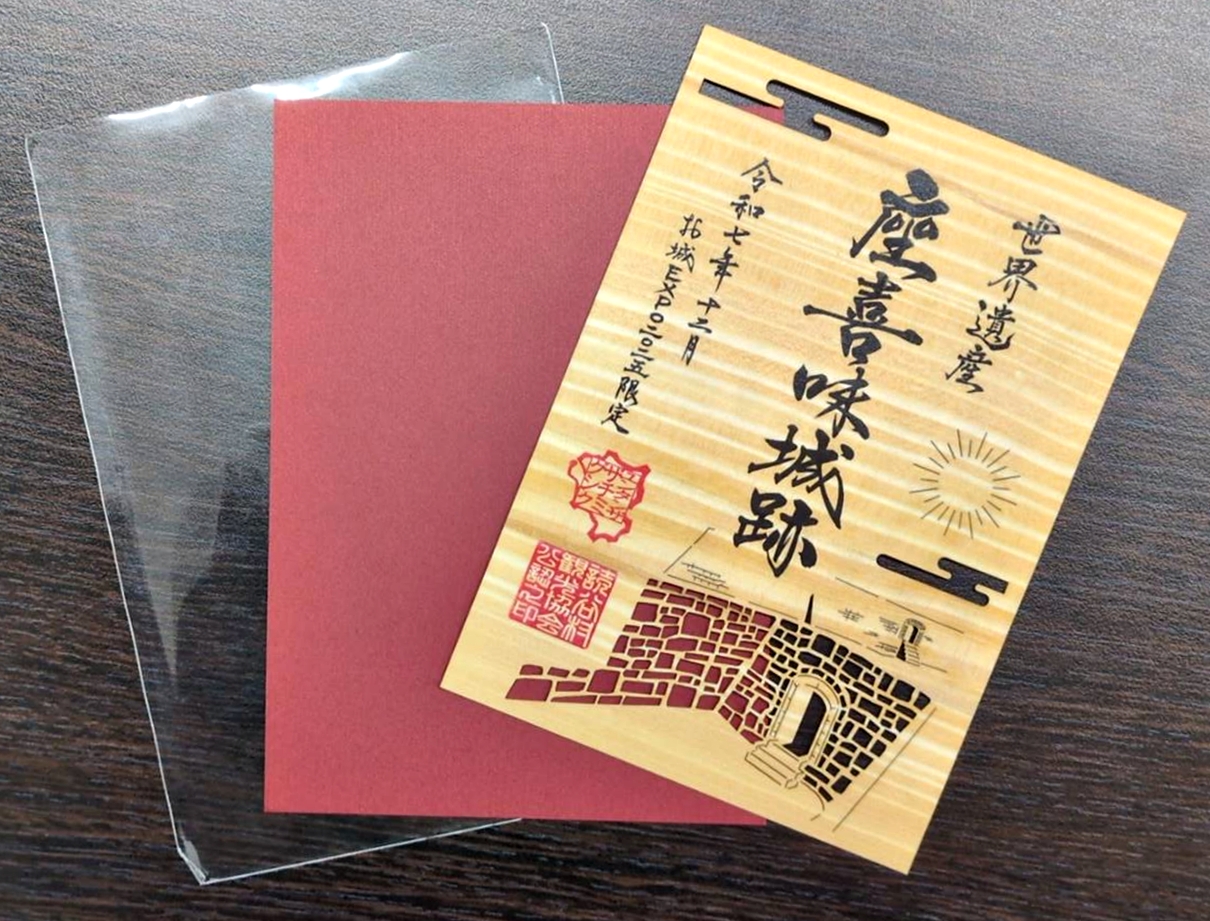 世界遺産
座喜味城跡
令和七年 十二月
お城EXPO二〇二五限定
読谷村
観光協会
公認之印